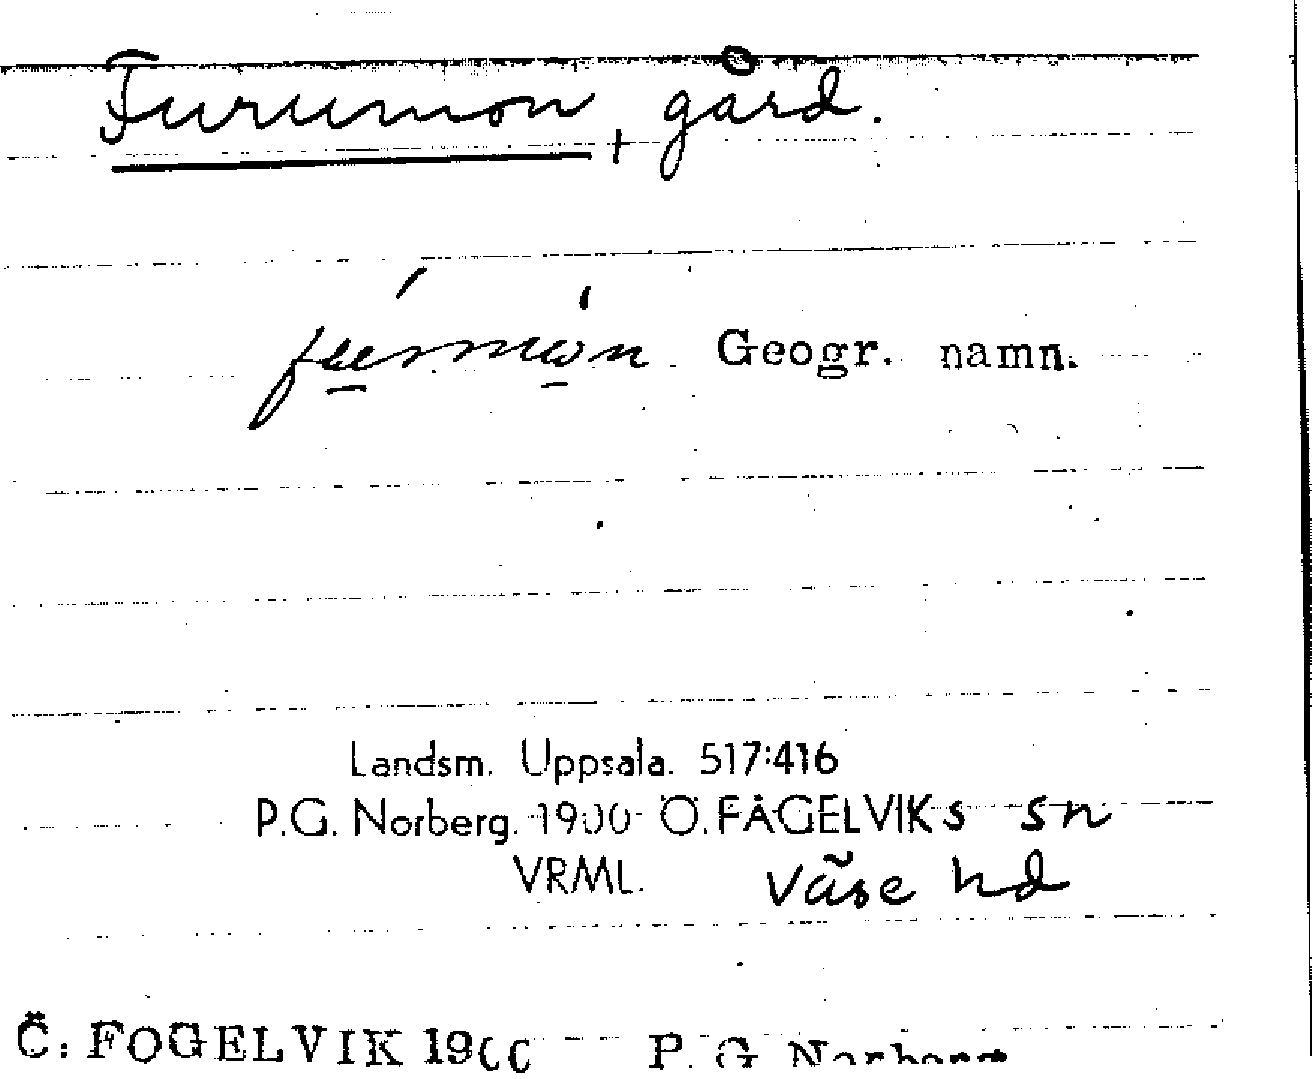 Furumon, gård.
Geogr. namn.
Landsm. Uppsala. 517:416
P.G. Norberg. 1900 Ö. FÅGELVIKs sn
VRML. Väse hd
Ö. FOGELVIK 1900 P. G Norberg